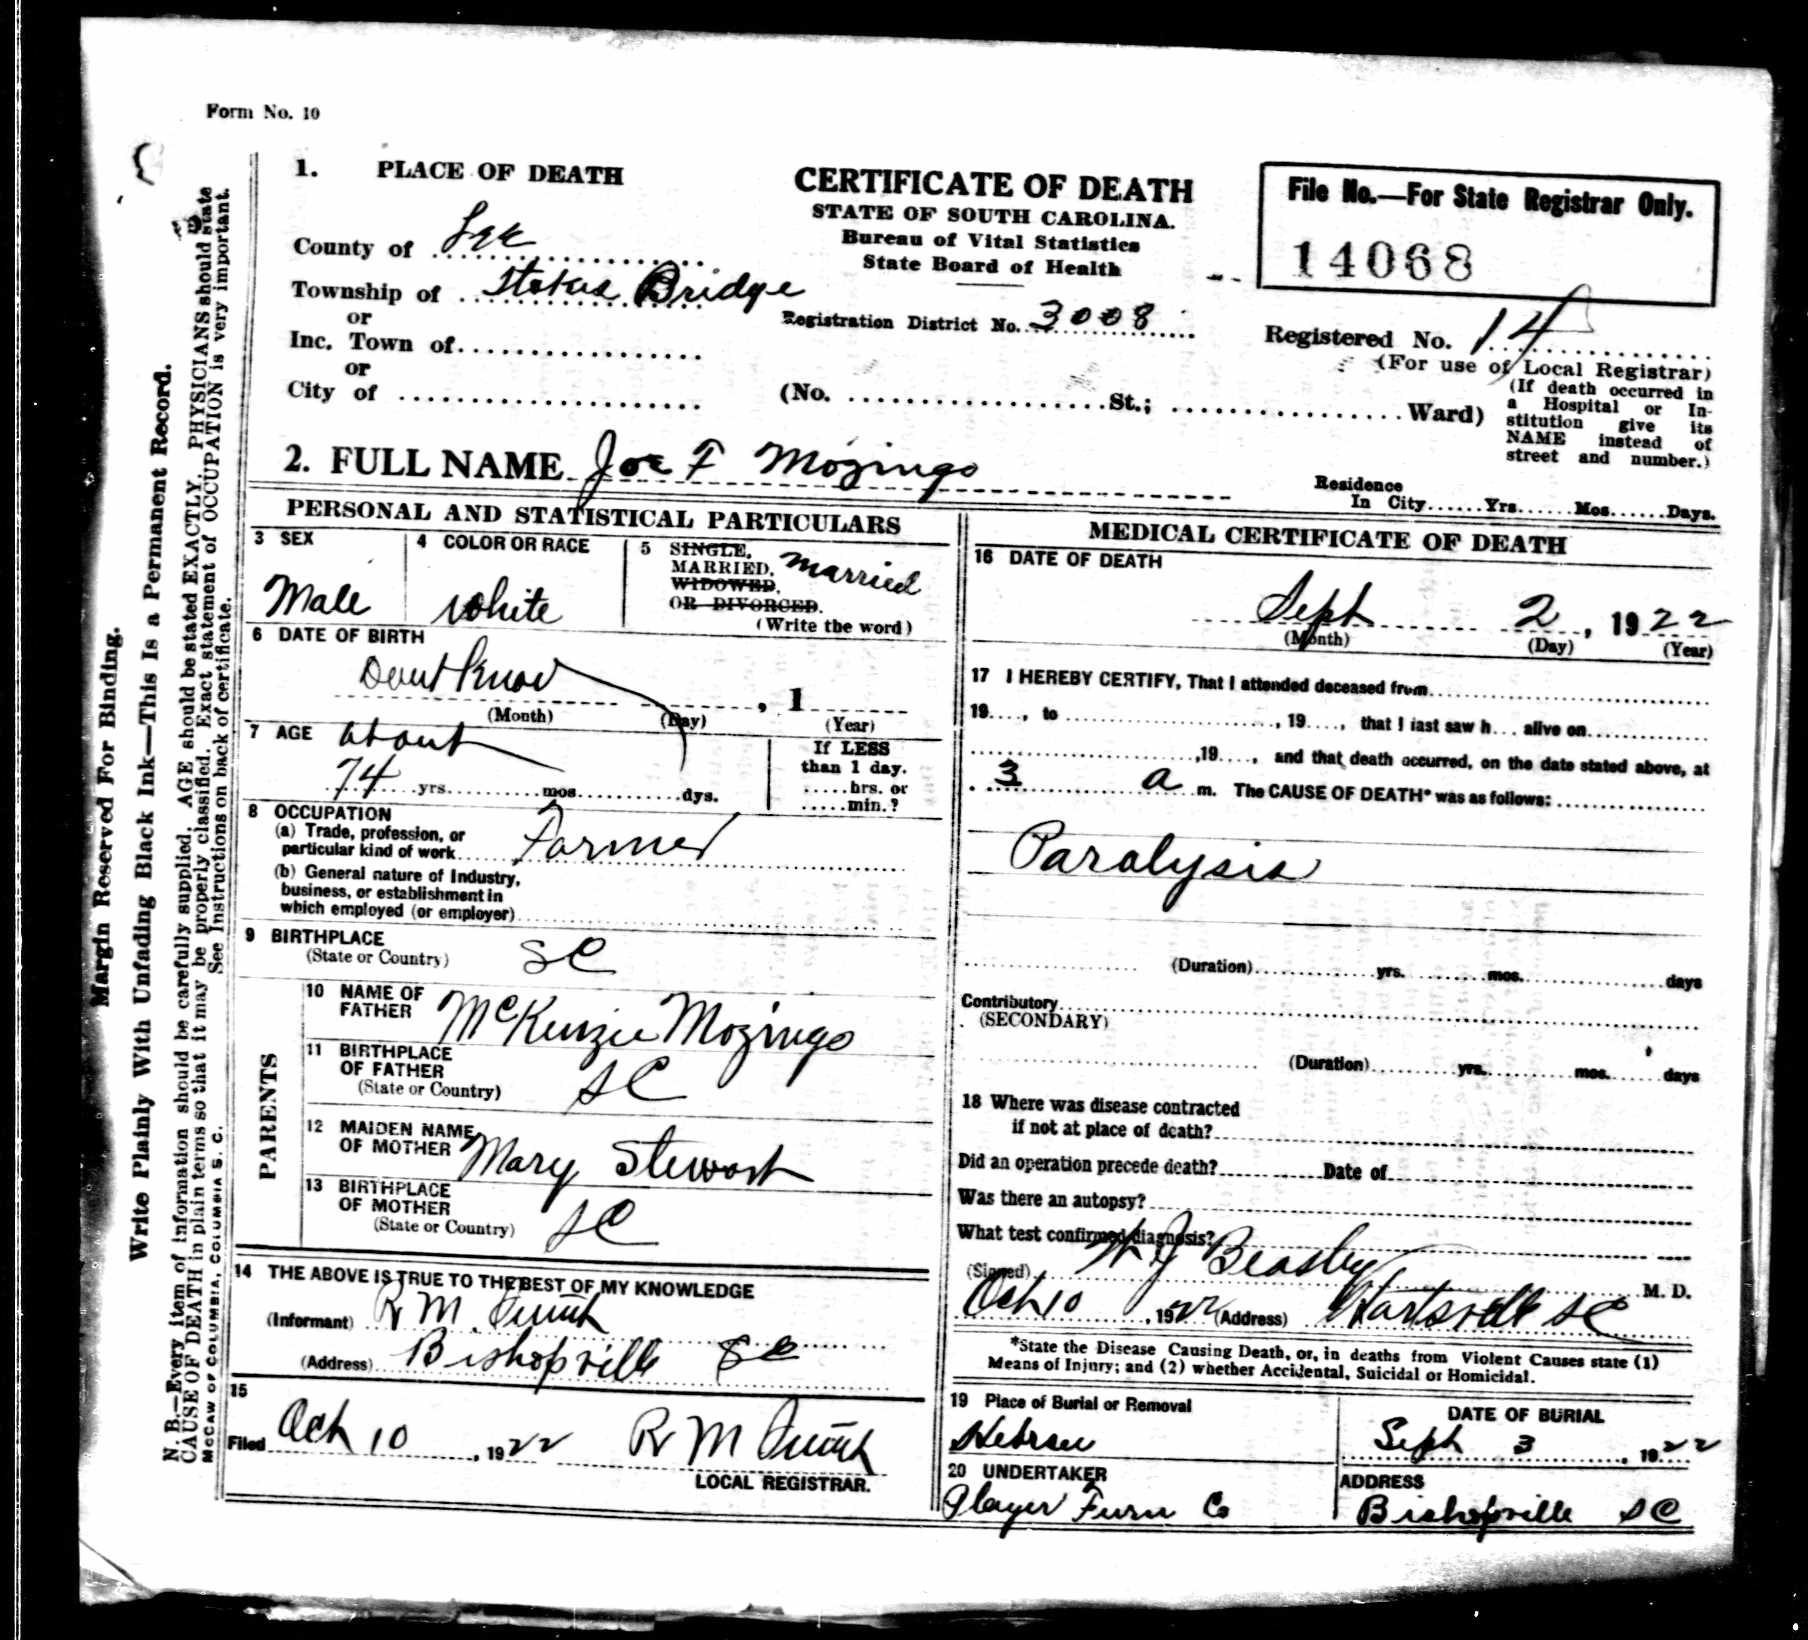 Form No. 10
1. PLACE OF DEATH
County of Lee
Township of Stokes Bridge
or
Inc. Town of
or
City of
CERTIFICATE OF DEATH
STATE OF SOUTH CAROLINA.
Bureau of Vital Statistics
State Board of Health
Registration District No. 3008
(No. St.; Ward)
File No.—For State Registrar Only.
14068
Registered No. 14
(For use of Local Registrar)
(If death occurred in
a Hospital or In-
stitution give its
NAME instead of
street and number.)
2. FULL NAME Joe F Mozingo
Residence
In City......Yrs......Mos......Days.
PERSONAL AND STATISTICAL PARTICULARS
3 SEX
Male
4 COLOR OR RACE
White
5 SINGLE,
MARRIED, Married
WIDOWED,
OR DIVORCED.
(Write the word)
6 DATE OF BIRTH
Dont Know , 1
(Month) (Day) (Year)
7 AGE about
74 yrs. mos. dys.
If LESS
than 1 day.
......hrs. or
......min.?
8 OCCUPATION
(a) Trade, profession, or
particular kind of work Farmer
(b) General nature of Industry,
business, or establishment in
which employed (or employer)
9 BIRTHPLACE
(State or Country) SC
PARENTS
10 NAME OF
FATHER McKenzie Mozingo
11 BIRTHPLACE
OF FATHER
(State or Country) SC
12 MAIDEN NAME
OF MOTHER Mary Stewart
13 BIRTHPLACE
OF MOTHER
(State or Country) SC
14 THE ABOVE IS TRUE TO THE BEST OF MY KNOWLEDGE
(Informant) R M
(Address) Bishopville SC
15
Filed Oct 10, 1922 R M
LOCAL REGISTRAR.
MEDICAL CERTIFICATE OF DEATH
16 DATE OF DEATH
Sept 2, 1922
(Month) (Day) (Year)
17 I HEREBY CERTIFY, That I attended deceased from
19...., to , 19...., that I last saw h... alive on
,19...., and that death occurred, on the date stated above, at
3 a m. The CAUSE OF DEATH* was as follows:
Paralysis
(Duration) yrs. mos. days
Contributory
(SECONDARY)
(Duration) yrs. mos. days
18 Where was disease contracted
if not at place of death?
Did an operation precede death? Date of
Was there an autopsy?
What test confirmed diagnosis?
(Signed) W J Beasley M. D.
Oct 10, 1922 (Address) Hartsville SC
*State the Disease Causing Death, or, in deaths from Violent Causes state (1)
Means of Injury; and (2) whether Accidental, Suicidal or Homicidal.
19 Place of Burial or Removal
Hebron
DATE OF BURIAL
Sept 3, 1922
20 UNDERTAKER
Player Furn Co
ADDRESS
Bishopville SC
Margin Reserved For Binding.
Write Plainly With Unfading Black Ink—This Is a Permanent Record.
N. B.—Every item of information should be carefully supplied. AGE should be stated EXACTLY. PHYSICIANS should state
CAUSE OF DEATH in plain terms so that it may be properly classified. Exact statement of OCCUPATION is very important.
See Instructions on back of certificate.
McCAW OF COLUMBIA, COLUMBIA S. C.